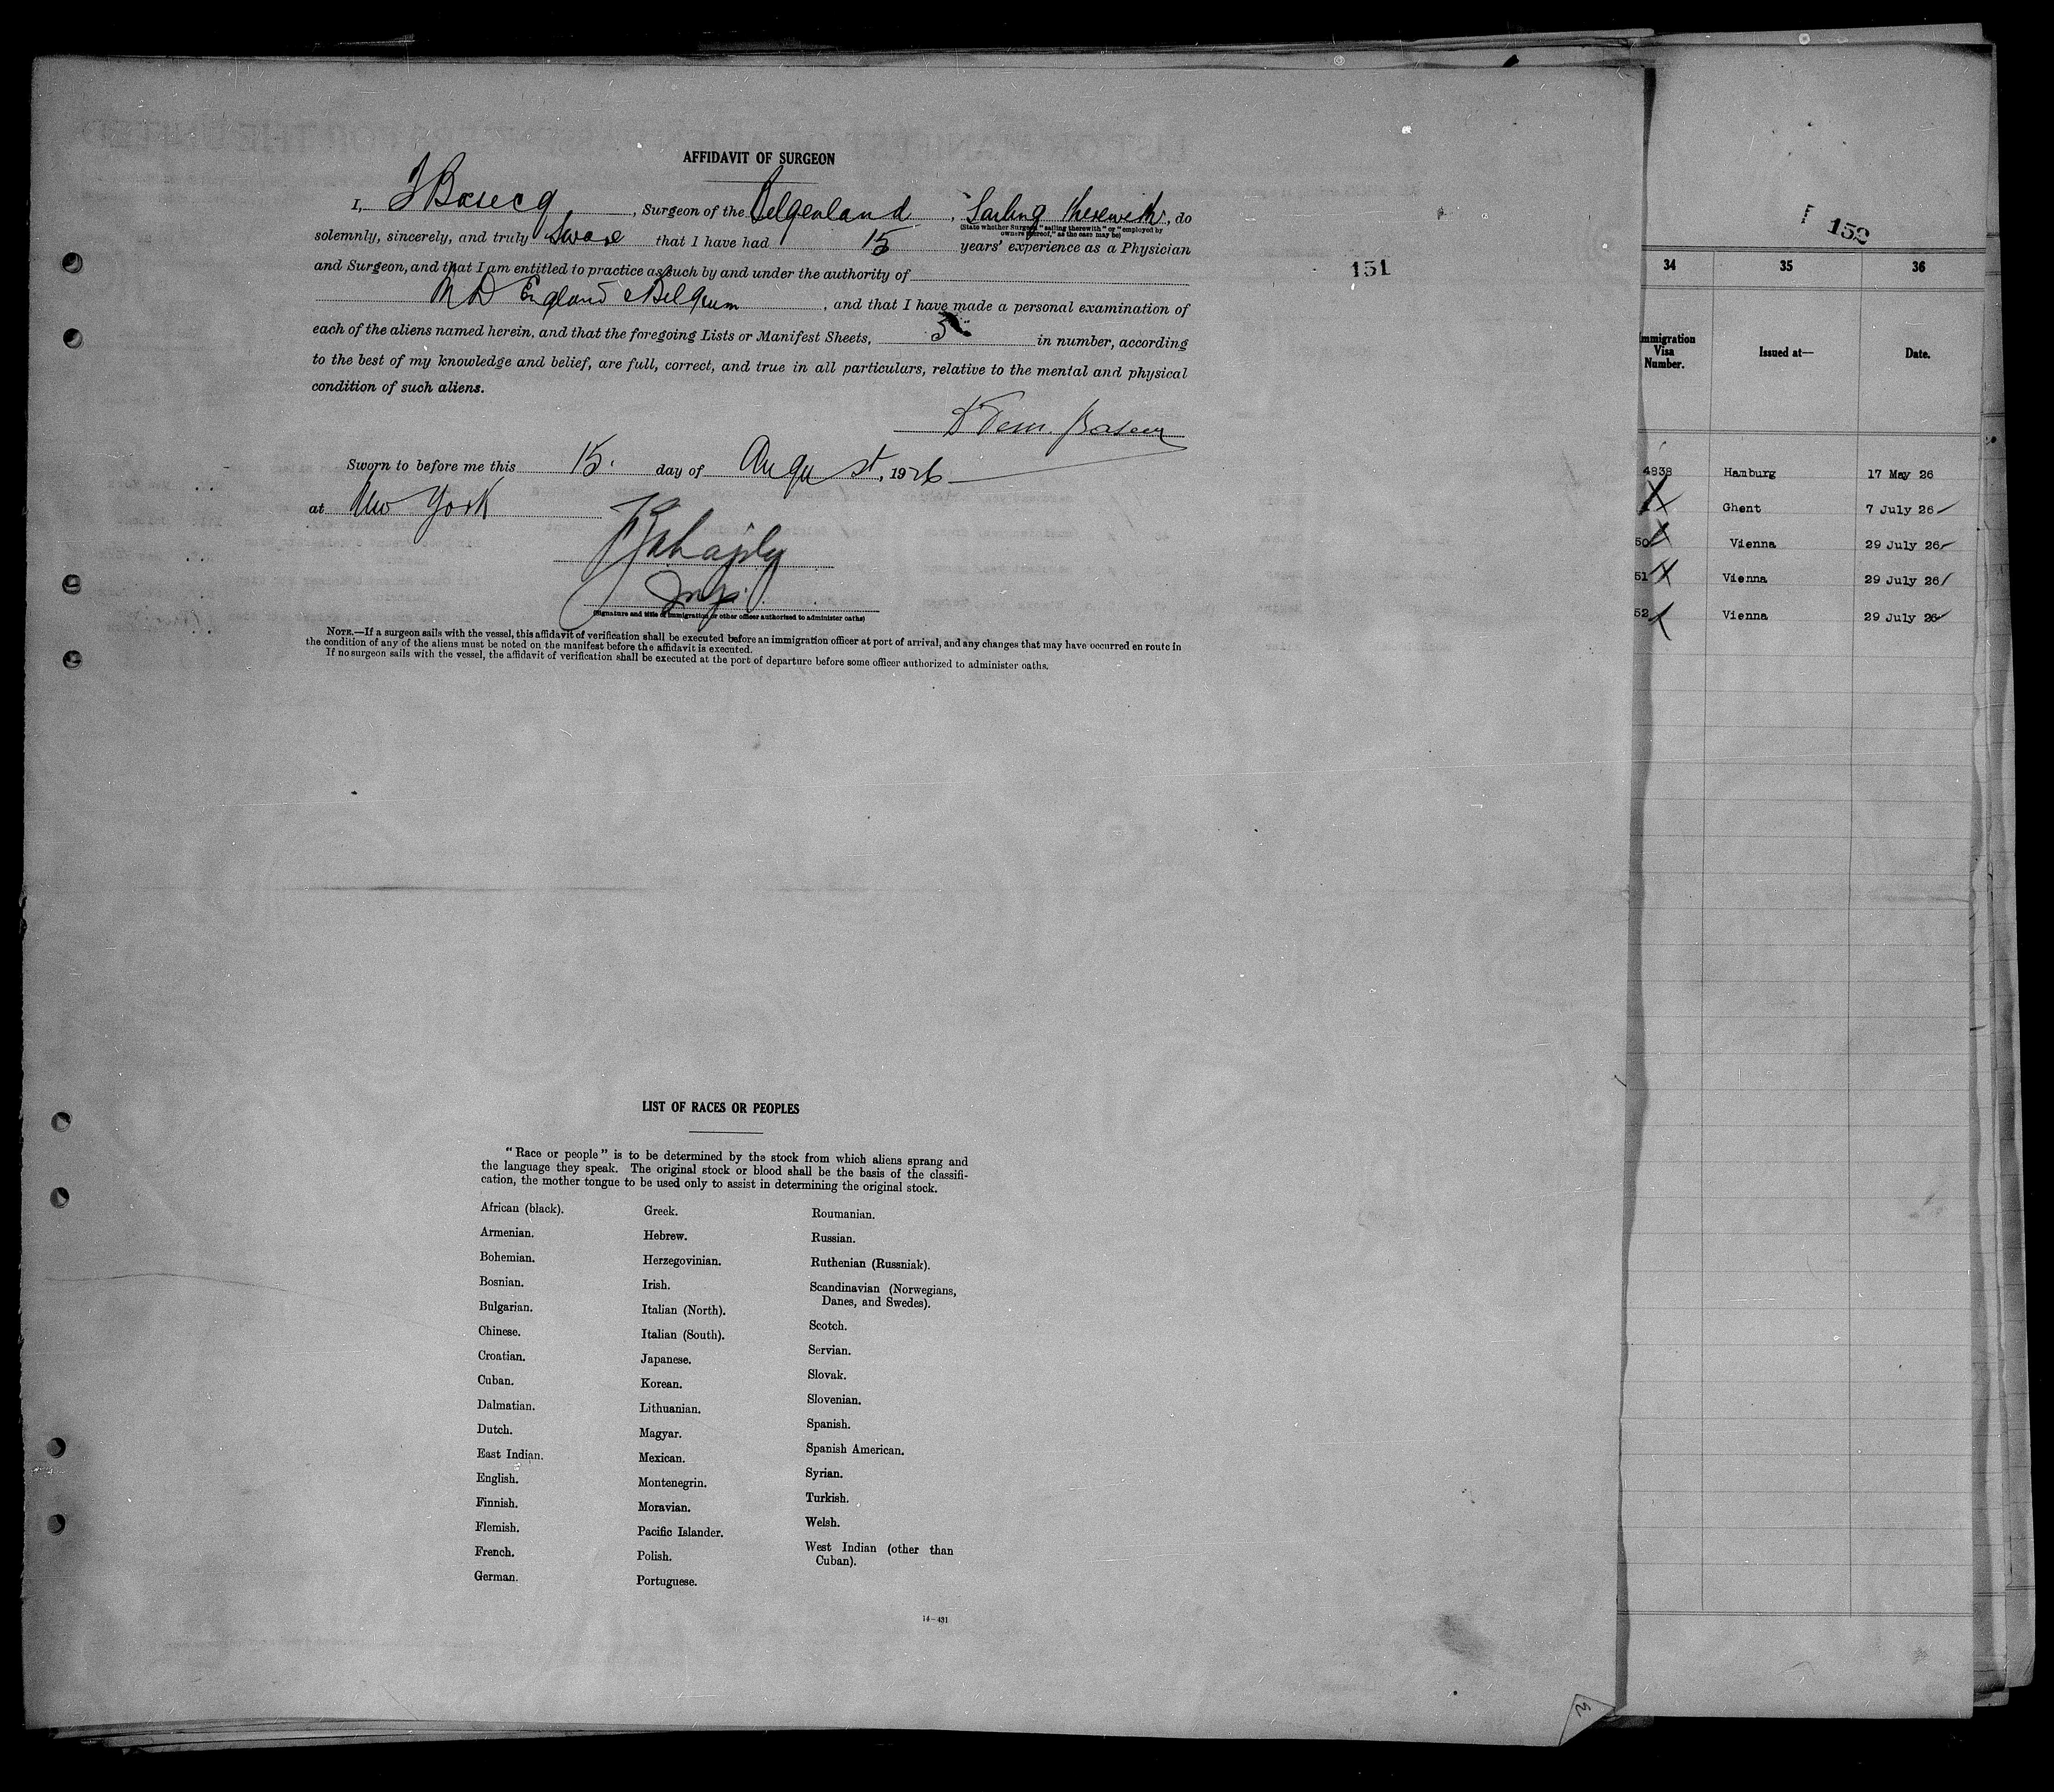 AFFIDAVIT OF SURGEON
I, , Surgeon of the Belgenland, Sailing therewith, do
(State whether Surgeon "sailing therewith" or "employed by
owners thereof," as the case may be)
solemnly, sincerely, and truly sware that I have had 15 years' experience as a Physician
and Surgeon, and that I am entitled to practice as such by and under the authority of
M D England & Belgium, and that I have made a personal examination of
each of the aliens named herein, and that the foregoing Lists or Manifest Sheets, 3 in number, according
to the best of my knowledge and belief, are full, correct, and true in all particulars, relative to the mental and physical
condition of such aliens.
Sworn to before me this 15. day of August, 1926
at New York
(Signature and title of immigration or other officer authorized to administer oaths)
NOTE.—If a surgeon sails with the vessel, this affidavit of verification shall be executed before an immigration officer at port of arrival, and any changes that may have occurred en route in
the condition of any of the aliens must be noted on the manifest before the affidavit is executed.
If no surgeon sails with the vessel, the affidavit of verification shall be executed at the port of departure before some officer authorized to administer oaths.
151
LIST OF RACES OR PEOPLES
"Race or people" is to be determined by the stock from which aliens sprang and
the language they speak. The original stock or blood shall be the basis of the classifi-
cation, the mother tongue to be used only to assist in determining the original stock.
African (black).
Armenian.
Bohemian.
Bosnian.
Bulgarian.
Chinese.
Croatian.
Cuban.
Dalmatian.
Dutch.
East Indian.
English.
Finnish.
Flemish.
French.
German.
Greek.
Hebrew.
Herzegovinian.
Irish.
Italian (North).
Italian (South).
Japanese.
Korean.
Lithuanian.
Magyar.
Mexican.
Montenegrin.
Moravian.
Pacific Islander.
Polish.
Portuguese.
Roumanian.
Russian.
Ruthenian (Russniak).
Scandinavian (Norwegians,
Danes, and Swedes).
Scotch.
Servian.
Slovak.
Slovenian.
Spanish.
Spanish American.
Syrian.
Turkish.
Welsh.
West Indian (other than
Cuban).
14—431
152
34 35 36
Immigration
Visa
Number.
Issued at—
Date.
4838 Hamburg 17 May 26
Ghent 7 July 26
50 Vienna 29 July 26
51 Vienna 29 July 26
52 Vienna 29 July 26